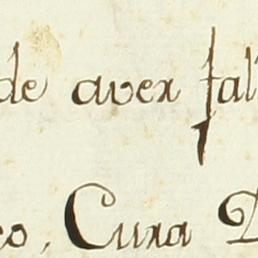 de aver fal
eo, Cura D